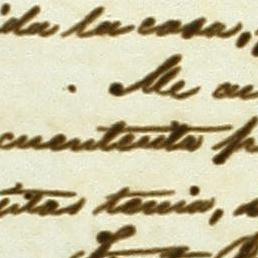 ida la casa,
. Me
cuententa
itas tenia,